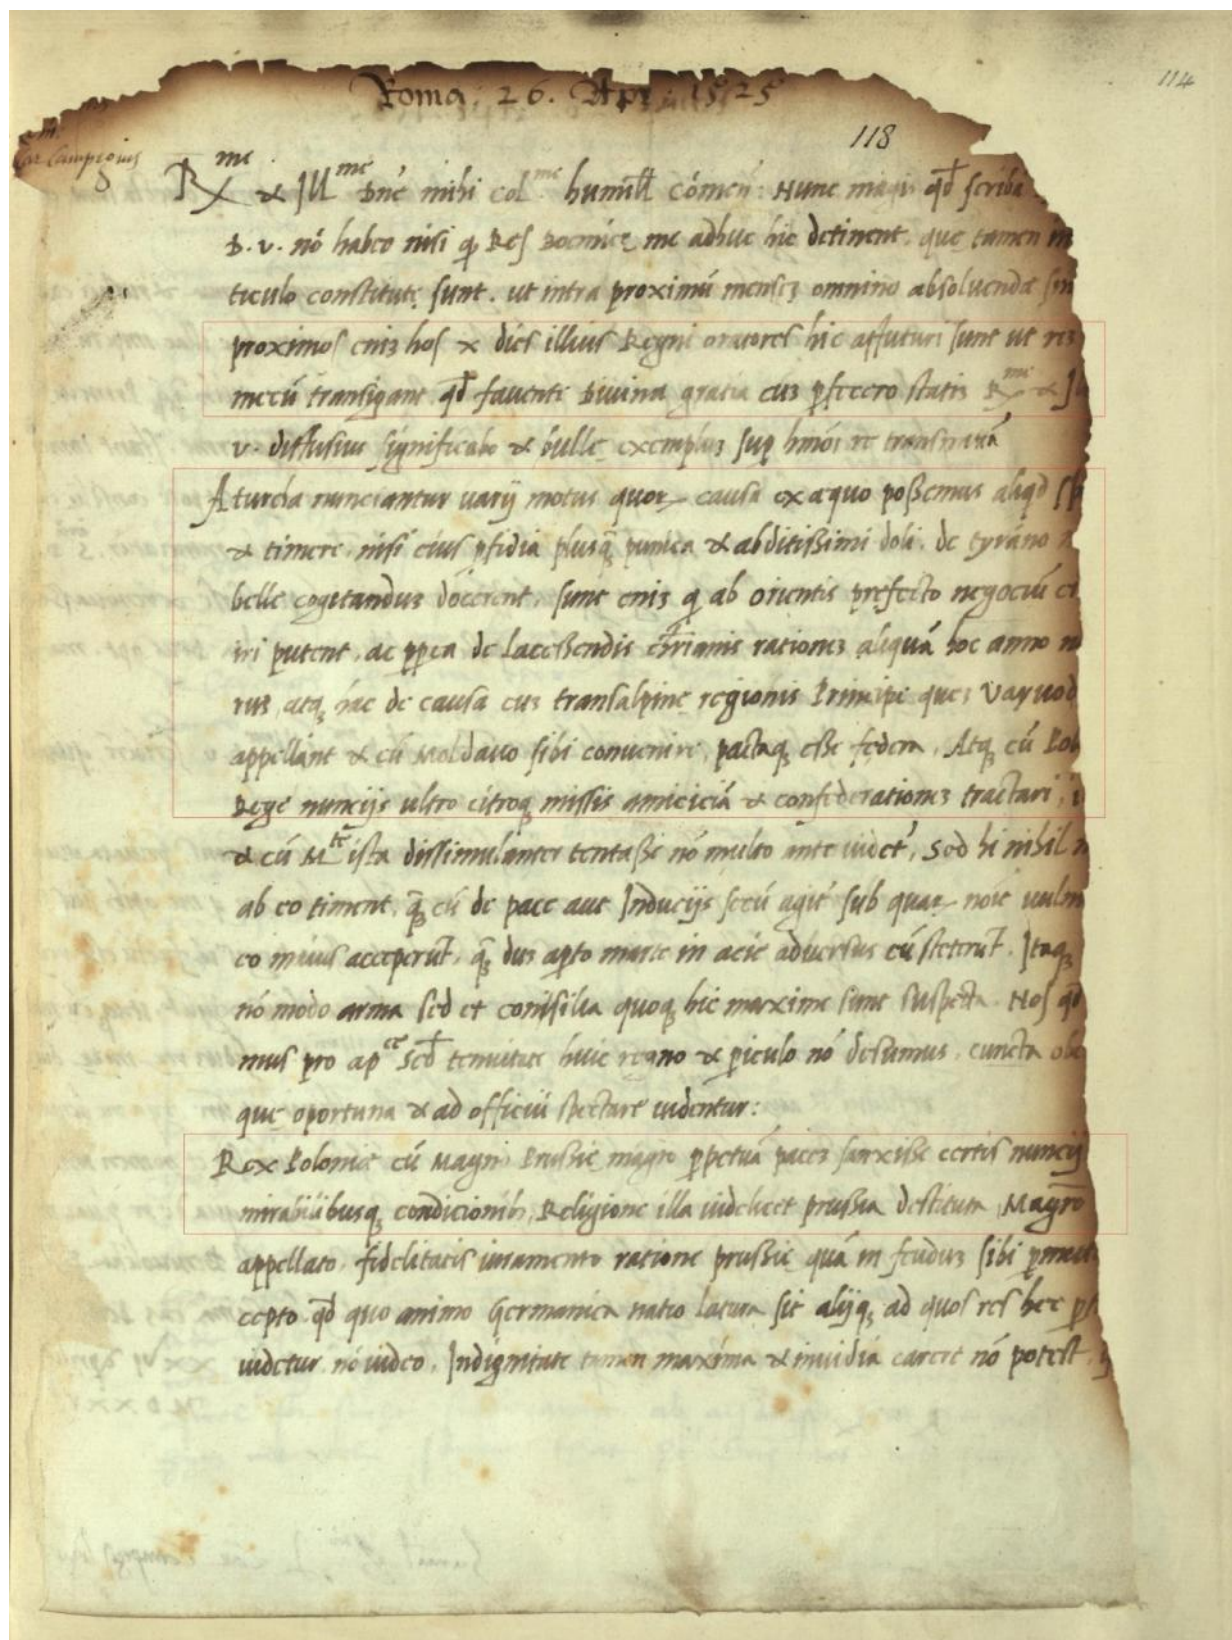 114
Roma. 26. Apr. 1525
118
Car. Campegius
R^me & Ill^me Dne mihi col^me humill comen: Nunc magis qd scriba
D. v. nó habeo nisi q Res Boemice me adhuc hic detinent, que tamen
ticulo constitute sunt. ut intra proximú mensez omnino absoluende
proximos eniz hos x dies illius Regni oratores hic affuturi sunt ut rez
mecú transigant. qd favente Divina gratia cuz pfecero statiz R^me &
v. diffusius significabo & bulle exempluz sup hmói re transmittá
A turcha nunciantur varij motus quor causa ex aequo possemus aliqd
& timere, nisi eius pfidia plusq punica & abditissimi doli, de tyráno
belle cogitanduz docerent, sunt eniz q ab orientis prefecto negociú
iri putent, ac ppea de lacessendis christianis rationez aliquá hoc anno
atq hac de causa cuz transalpine regionis Principe quez Vayuod
appellant & cú Moldavo sibi convenire, pactaq esse federa, Atq cú Pol
Rege nuncijs ultro citroq missis amiciciá & confederationez tractari,
& cú M^te ista dissimulanter tentasse nó multo ante videt, Sed hi nihil
ab eo timent, q cú de pace aut Inducijs secú agit sub quar noie vuln
eo minus acceperut, q duz apto marte in acie adversus eú steterut. Itaq
nó modo arma sed et consilia quoq hic maxime sunt suspecta. Nos qd
mus pro ap^ce Sed tenuitate huic regno & piculo nó desumus, cuncta
que oportuna & ad officiú spectare videntur:
Rex Polonie cú Magno Prussie magro ppetuá pacez sanxisse certis nuncij
mirabilibusq condicionib, Religione illa videlicet prussia destituta, Magro
appellato, fidelitatis iuramento ratione prussie quá in feuduz sibi
cepto qd quo animo Germanica natio latura sit alijq ad quos res hec
videtur nó video, Indignitate tamen maxima & invidia carere nó potest